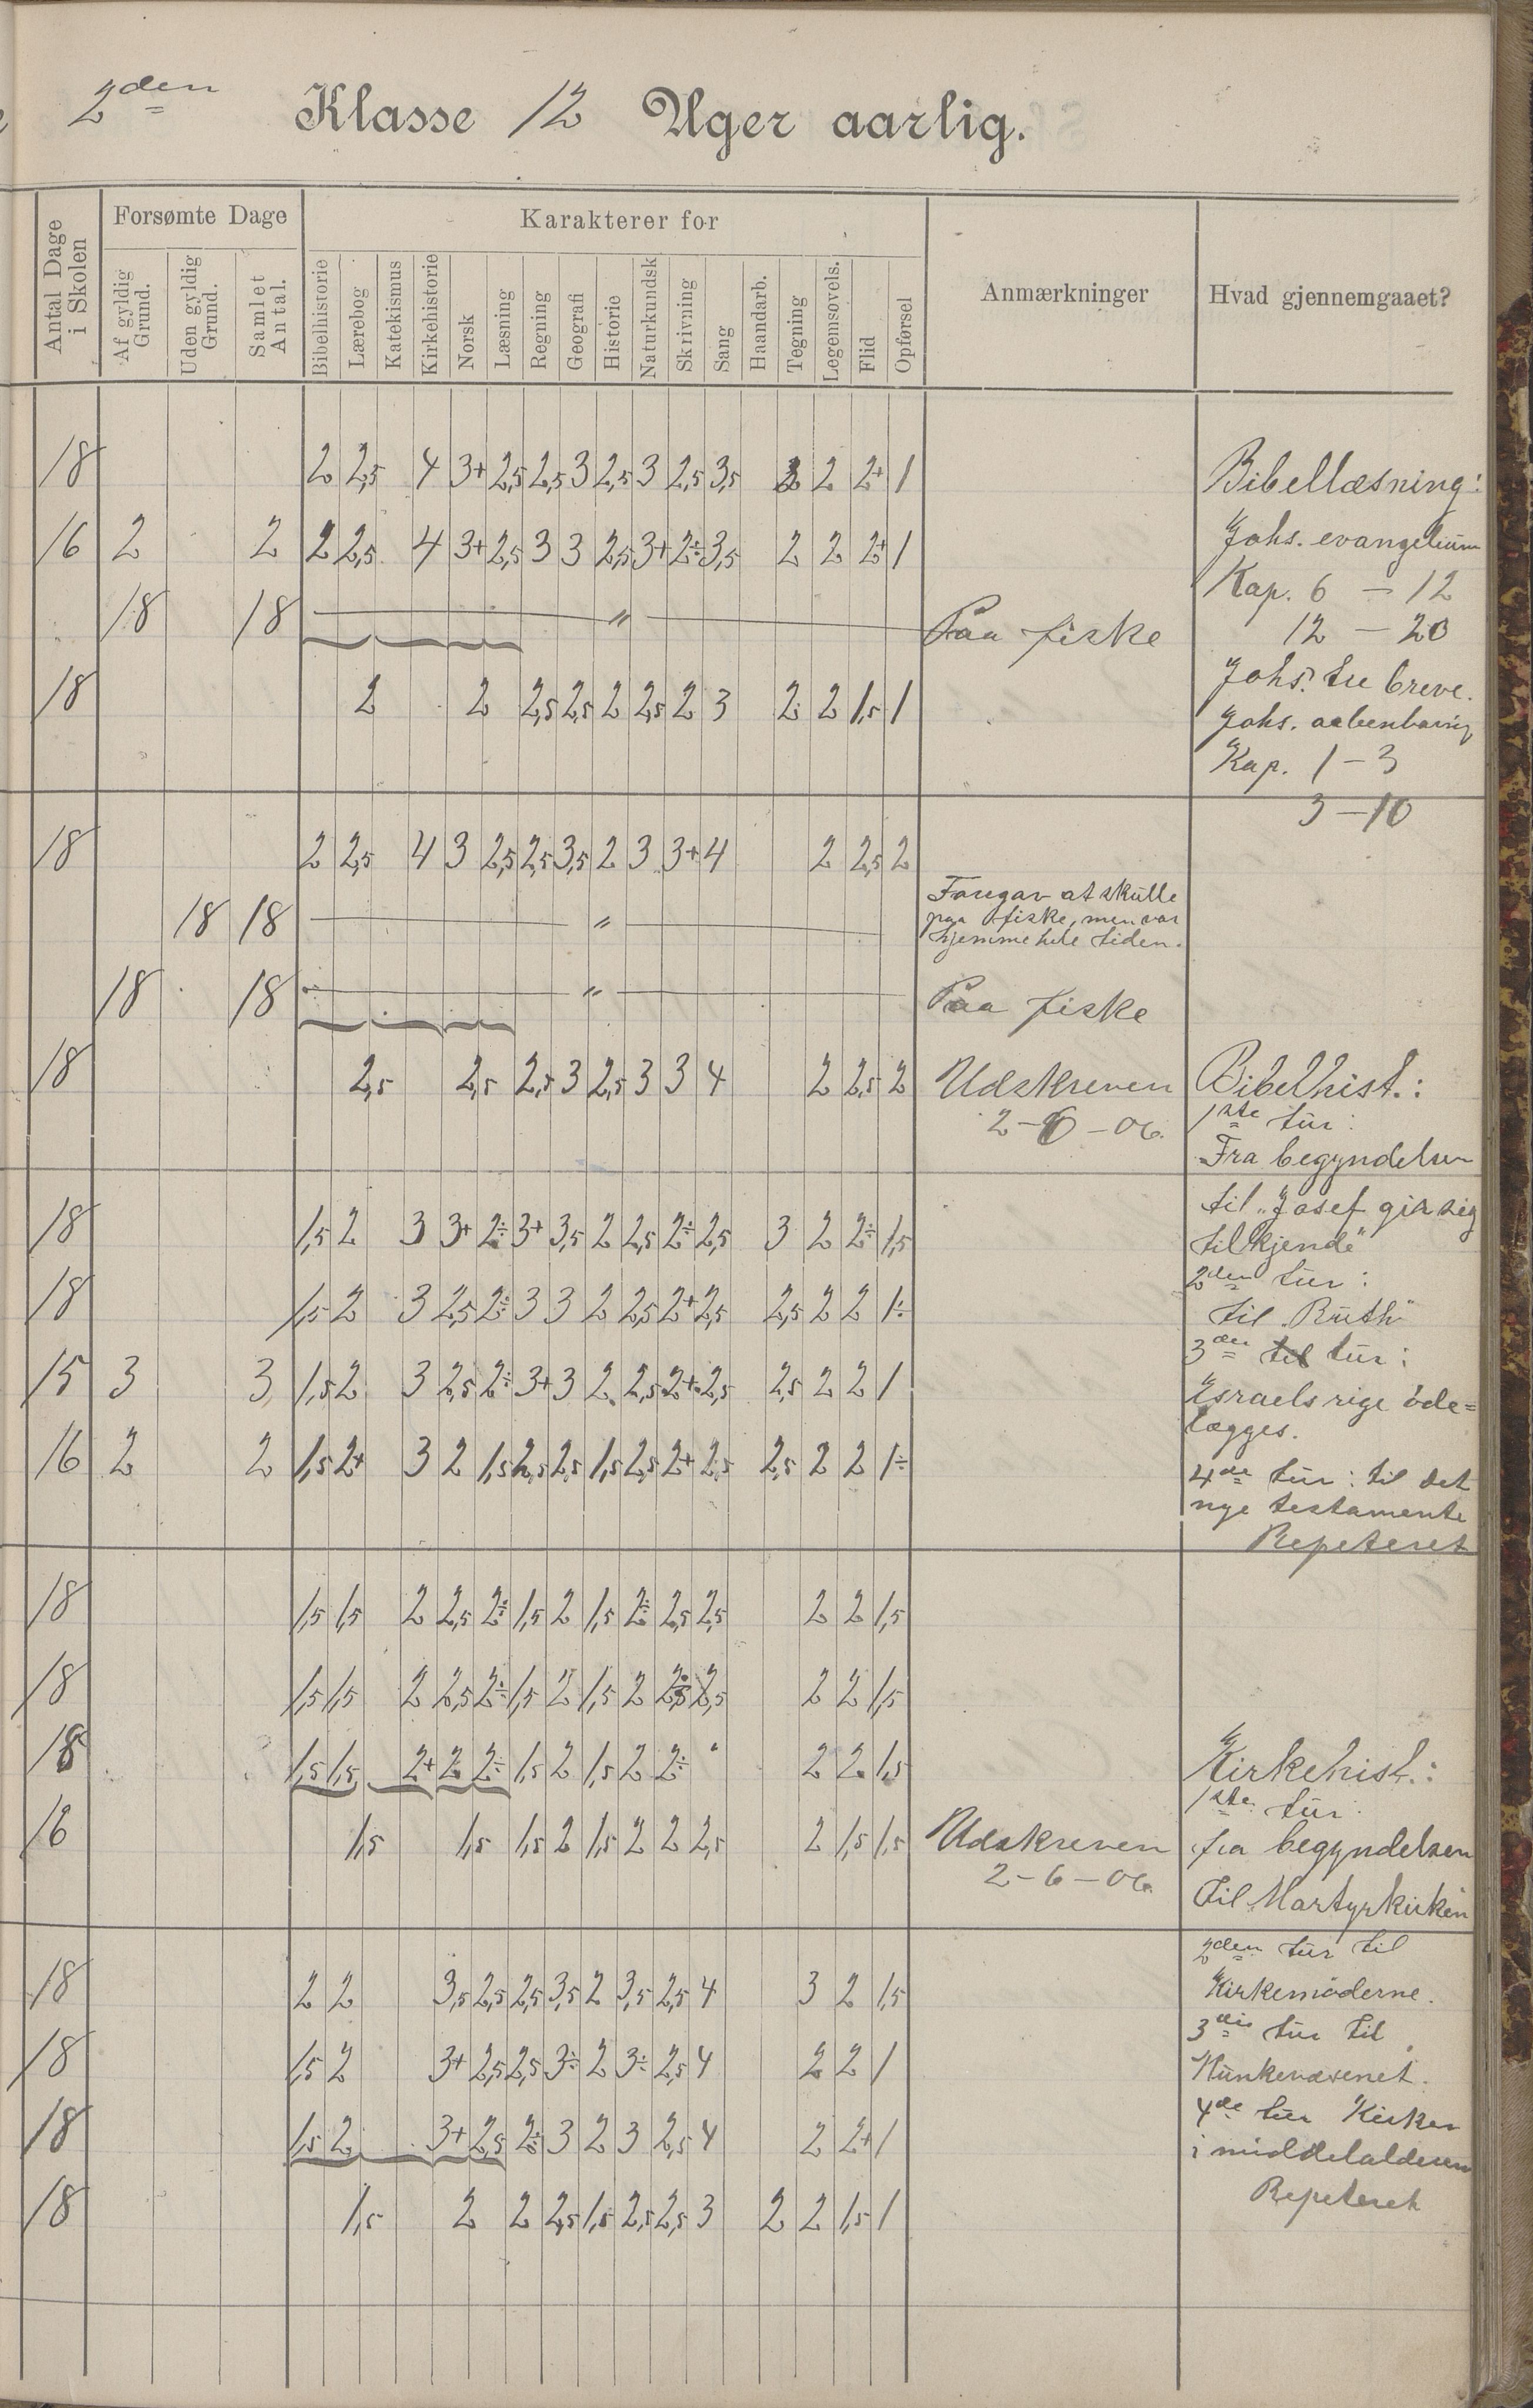 2den Klasse 12 Uger aarlig.
Antal Dage i Skolen
Forsømte Dage
Karakterer for
Anmærkninger
Hvad gjennemgaaet?
Af gyldig Grund.
Uden gyldig Grund.
Samlet Antal.
Bibelhistorie
Lærebog
Katekismus
Kirkehistorie
Norsk
Læsning
Regning
Geografi
Historie
Naturkundsk
Skrivning
Sang
Haandarb.
Tegning
Legemsøvels.
Flid
Opførsel
18 2 2,5 4 3+ 2,5 2,5 3 2,5 3 2,5 3,5 3 2 2+ 1
16 2 2 2 2,5 4 3+ 2,5 3 3 2,5 3+ 2÷ 3,5 2 2 2+ 1
18 18 — " — Paa fiske
18 2 2 2,5 2,5 2 2,5 2 3 2 2 1,5 1
18 2 2,5 4 3 2,5 2,5 3,5 2 3 3+ 4 2 2,5 2
18 18 — " — Foregav at skulle
paa fiske, men var
hjemme hele tiden.
18 18 — " — Paa fiske
18 2,5 2,5 2,5 3 2,5 3 3 4 2 2,5 2 Udskreven
2-6-06.
18 1,5 2 3 3+ 2÷ 3+ 3,5 2 2,5 2÷ 2,5 3 2 2÷ 1,5
18 1,5 2 3 2,5 2÷ 3 3 2 2,5 2+ 2,5 2,5 2 2 1÷
15 3 3 1,5 2 3 2,5 2÷ 3+ 3 2 2,5 2+ 2,5 2,5 2 2 1
16 2 2 1,5 2+ 3 2 1,5 2,5 2,5 1,5 2,5 2+ 2,5 2,5 2 2 1÷
18 1,5 1,5 2 2,5 2÷ 1,5 2 1,5 2÷ 2,5 2,5 2 2 1,5
18 1,5 1,5 2 2,5 2÷ 1,5 2 1,5 2 2÷ 2,5 2 2 1,5
18 1,5 1,5 2+ 2 2÷ 1,5 2 1,5 2 2÷ " 2 2 1,5
16 1,5 1,5 1,5 2 1,5 2 2 2,5 2 1,5 1,5 Udskreven
2-6-06.
18 2 2 3,5 2,5 2,5 3,5 2 3,5 2,5 4 3 2 1,5
18 1,5 2 3+ 2,5 2,5 3÷ 2 3÷ 2,5 4 2 2 1
18 1,5 2 3+ 2,5 2÷ 3 2 3 2,5 4 2 2+ 1
18 1,5 2 2 2,5 1,5 2,5 2,5 3 2 2 1,5 1
Bibellæsning:
Johs. evangelium
Kap. 6 - 12
12 - 20
Johs. tre breve.
Johs. aabenbaring
Kap. 1 - 3
3 - 10
Bibelhist.:
1ste tur:
Fra begyndelsen
til "Josef gir sig
tilkjende"
2den tur:
til "Ruth"
3die tur:
Israels rige øde=
lægges.
4de tur: til det
nye testamente
Repeteret
Kirkehist.:
1ste tur:
fra begyndelsen
til Martyrkirken
2den tur til
Kirkemøderne.
3die tur til
Munkevæsenet.
4de tur Kirken
i middelalderen
Repeteret